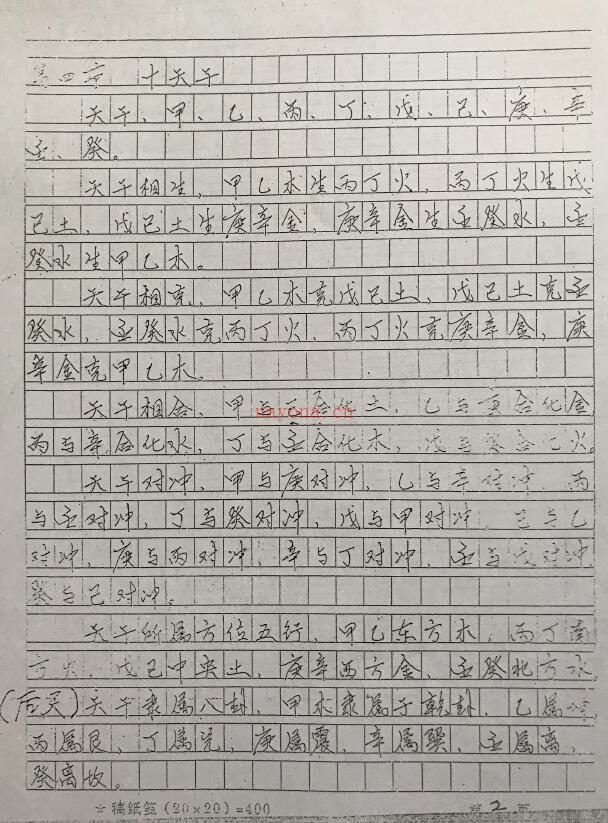 第四章 十天干
天干、甲、乙、丙、丁、戊、己、庚、辛
壬、癸。
天干相生，甲乙木生丙丁火，丙丁火生戊
己土，戊己土生庚辛金，庚辛金生壬癸水，壬
癸水生甲乙木。
天干相克，甲乙木克戊己土，戊己土克壬
癸水，壬癸水克丙丁火，丙丁火克庚辛金，庚
辛金克甲乙木。
天干相合，甲与己合化土，乙与庚合化金
丙与辛合化水，丁与壬合化木，戊与癸合化火。
天干对冲，甲与庚对冲，乙与辛对冲，丙
与壬对冲，丁与癸对冲，戊与甲对冲，己与乙
对冲，庚与丙对冲，辛与丁对冲，壬与戊对冲
癸与己对冲。
天干所属方位五行，甲乙东方木，丙丁南
方火，戊己中央土，庚辛西方金，壬癸北方水。
(后天)天干隶属八卦，甲木隶属于乾卦，乙属坤
丙属艮，丁属兑，庚属震，辛属巽，壬属离，
癸离坎。
☆稿纸笺(20×20)=400 第2页